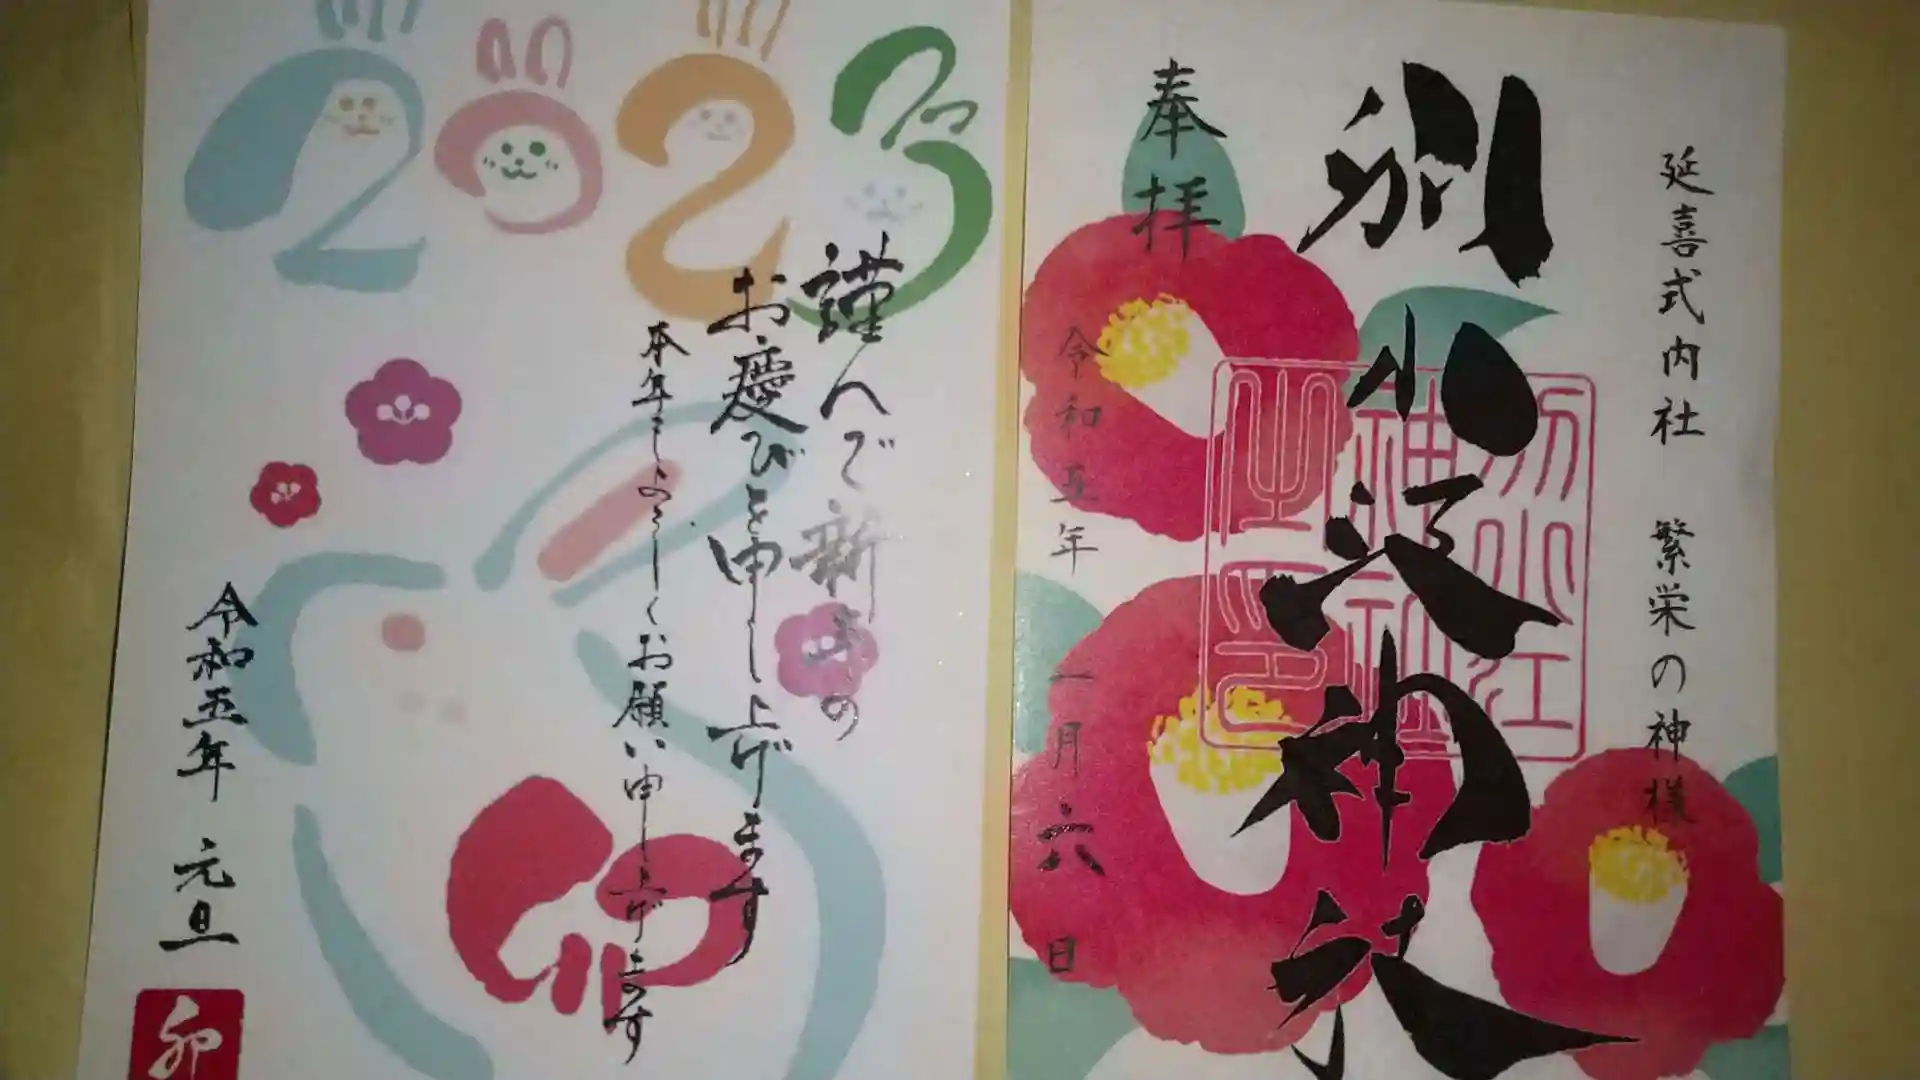 2023
謹んで新年の
お慶びを申し上げます
本年もよろしくお願い申し上げます
令和五年 元旦
卯
延喜式内社 繁栄の神様
別小江神社
別小江
神社
之印
奉拝
令和五年一月六日